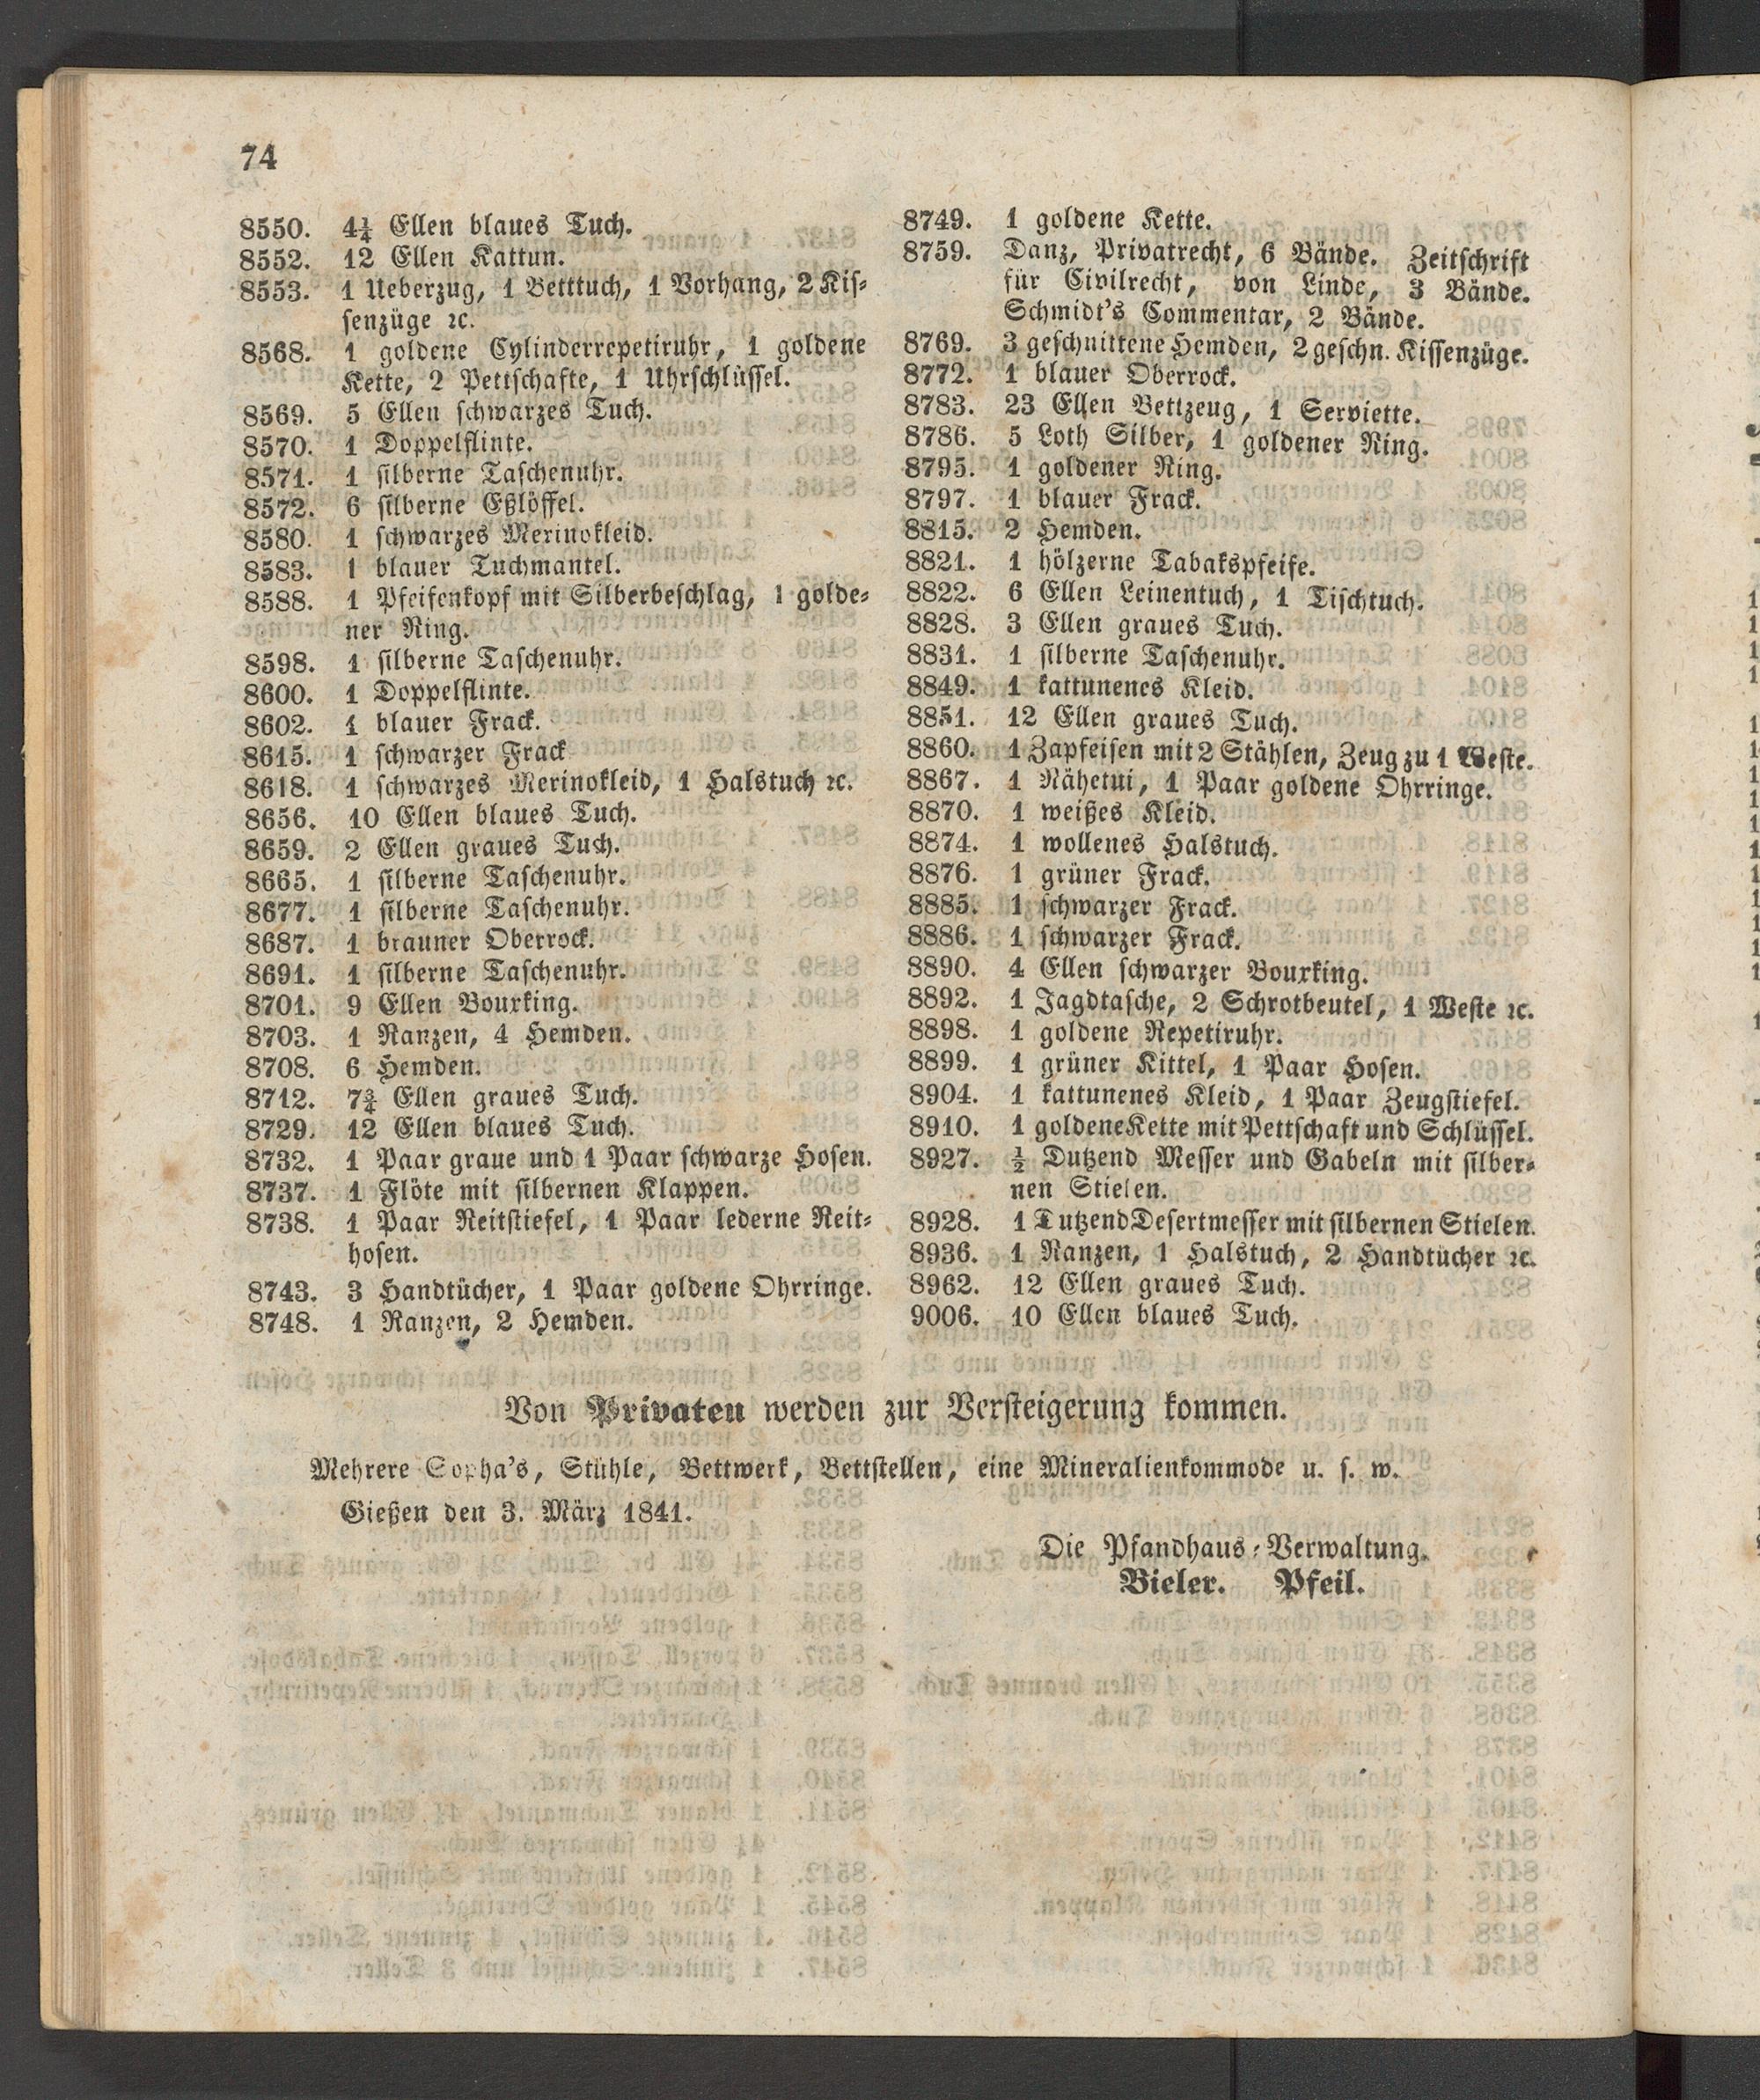 74
8550. 4¼ Ellen blaues Tuch.
8552. 12 Ellen Kattun.
8553. 1 Ueberzug, 1 Betttuch, 1 Vorhang, 2 Kis-
senzüge ꝛc.
8568. 1 goldene Cylinderrepetiruhr, 1 goldene
Kette, 2 Pettschafte, 1 Uhrschlüssel.
8569. 5 Ellen schwarzes Tuch.
8570. 1 Doppelflinte.
8571. 1 silberne Taschenuhr.
8572. 6 silberne Eßlöffel.
8580. 1 schwarzes Merinokleid.
8583. 1 blauer Tuchmantel.
8588. 1 Pfeifenkopf mit Silberbeschlag, 1 golde-
ner Ring.
8598. 1 silberne Taschenuhr.
8600. 1 Doppelflinte.
8602. 1 blauer Frack.
8615. 1 schwarzer Frack
8618. 1 schwarzes Merinokleid, 1 Halstuch ꝛc.
8656. 10 Ellen blaues Tuch.
8659. 2 Ellen graues Tuch.
8665. 1 silberne Taschenuhr.
8677. 1 silberne Taschenuhr.
8687. 1 brauner Oberrock.
8691. 1 silberne Taschenuhr.
8701. 9 Ellen Bourking.
8703. 1 Ranzen, 4 Hemden.
8708. 6 Hemden.
8712. 7¾ Ellen graues Tuch.
8729. 12 Ellen blaues Tuch.
8732. 1 Paar graue und 1 Paar schwarze Hosen.
8737. 1 Flöte mit silbernen Klappen.
8738. 1 Paar Reitstiefel, 1 Paar lederne Reit-
hosen.
8743. 3 Handtücher, 1 Paar goldene Ohrringe.
8748. 1 Ranzen, 2 Hemden.
8749. 1 goldene Kette.
8759. Danz, Privatrecht, 6 Bände. Zeitschrift
für Civilrecht, von Linde, 3 Bände.
Schmidt's Commentar, 2 Bände.
8769. 3 geschnittene Hemden, 2 geschn. Kissenzüge.
8772. 1 blauer Oberrock.
8783. 23 Ellen Bettzeug, 1 Serviette.
8786. 5 Loth Silber, 1 goldener Ring.
8795. 1 goldener Ring.
8797. 1 blauer Frack.
8815. 2 Hemden.
8821. 1 hölzerne Tabakspfeife.
8822. 6 Ellen Leinentuch, 1 Tischtuch.
8828. 3 Ellen graues Tuch.
8831. 1 silberne Taschenuhr.
8849. 1 kattunenes Kleid.
8851. 12 Ellen graues Tuch.
8860. 1 Zapfeisen mit 2 Stählen, Zeug zu 1 Weste.
8867. 1 Nähetui, 1 Paar goldene Ohrringe.
8870. 1 weißes Kleid.
8874. 1 wollenes Halstuch.
8876. 1 grüner Frack.
8885. 1 schwarzer Frack.
8886. 1 schwarzer Frack.
8890. 4 Ellen schwarzer Bourking.
8892. 1 Jagdtasche, 2 Schrotbeutel, 1 Weste ꝛc.
8898. 1 goldene Repetiruhr.
8899. 1 grüner Kittel, 1 Paar Hosen.
8904. 1 kattunenes Kleid, 1 Paar Zeugstiefel.
8910. 1 goldene Kette mit Pettschaft und Schlüssel.
8927. ½ Dutzend Messer und Gabeln mit silber-
nen Stielen.
8928. 1 Dutzend Desertmesser mit silbernen Stielen.
8936. 1 Ranzen, 1 Halstuch, 2 Handtücher ꝛc.
8962. 12 Ellen graues Tuch.
9006. 10 Ellen blaues Tuch.
Von Privaten werden zur Versteigerung kommen.
Mehrere Sopha's, Stühle, Bettwerk, Bettstellen, eine Mineralienkommode u. s. w.
Gießen den 3. März 1841.
Die Pfandhaus-Verwaltung.
Bieler. Pfeil.